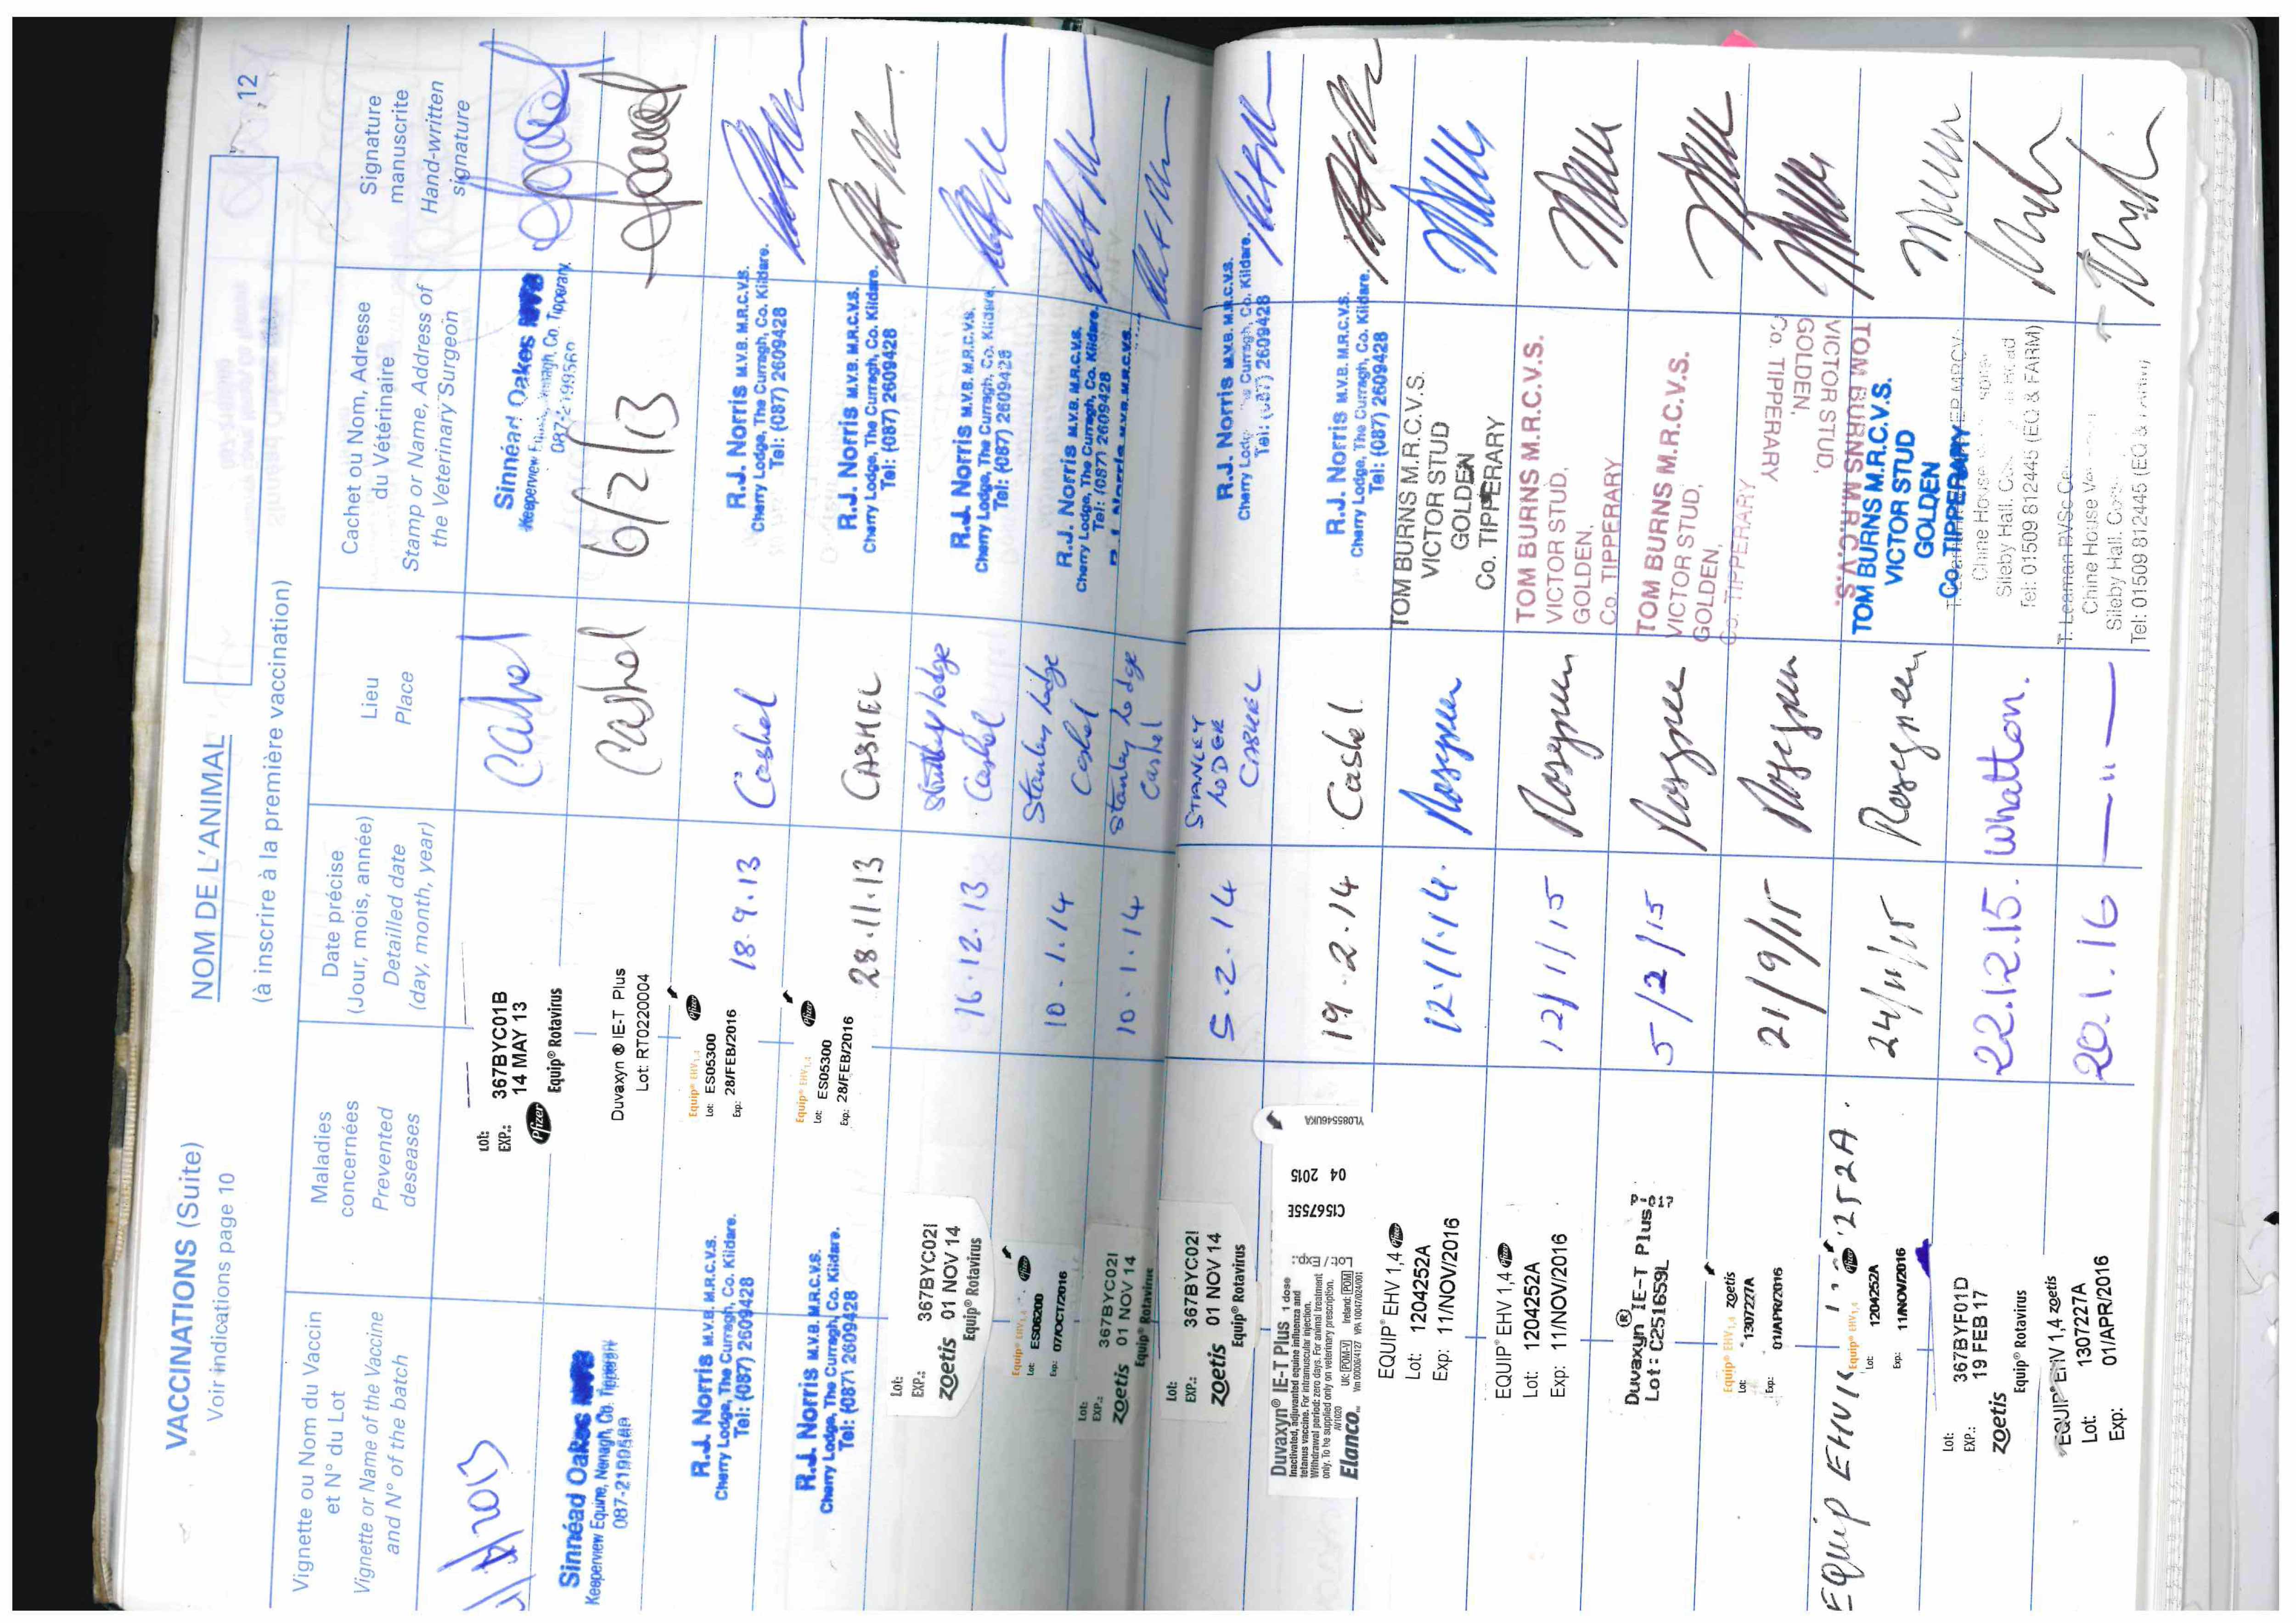 VACCINATIONS (Suite)
Voir indications page 10
NOM DE L'ANIMAL
(à inscrire à la première vaccination)
12
Vignette ou Nom du Vaccin
et N° du Lot
Vignette or Name of the Vaccine
and N° of the batch
Maladies
concernées
Prevented
deseases
Date précise
(Jour, mois, année)
Detailled date
(day, month, year)
Lieu
Place
Cachet ou Nom, Adresse
du Vétérinaire
Stamp or Name, Address of
the Veterinary Surgeon
Signature
manuscrite
Hand-written
signature
Lot: 367BYC01B
EXP.: 14 MAY 13
Pfizer Equip® Rotavirus
Cashel
Sinnéad Oakes
Keeperview
Co. Tipperary.
Sinnéad Oakes
Keeperview Equine, Nenagh, Co. Tipperary
Duvaxyn ® IE-T Plus
Lot: RT0220004
Cashel
6/2/13
R.J. Norris M.V.B. M.R.C.V.S.
Cherry Lodge, The Curragh, Co. Kildare.
Tel: (087) 2609428
Equip® EHV1,4 Pfizer
Lot: ES05300
Exp.: 28/FEB/2016
18.9.13
Cashel
R.J. Norris M.V.B. M.R.C.V.S.
Cherry Lodge, The Curragh, Co. Kildare.
Tel: (087) 2609428
R.J. Norris M.V.B. M.R.C.V.S.
Cherry Lodge, The Curragh, Co. Kildare.
Tel: (087) 2609428
Equip® EHV1,4 Pfizer
Lot: ES05300
Exp.: 28/FEB/2016
28.11.13
CASHEL
R.J. Norris M.V.B. M.R.C.V.S.
Cherry Lodge, The Curragh, Co. Kildare.
Tel: (087) 2609428
Lot: 367BYC02I
EXP.: 01 NOV 14
zoetis Equip® Rotavirus
16.12.13
Cashel
R.J. Norris M.V.B. M.R.C.V.S.
Cherry Lodge, The Curragh, Co. Kildare.
Tel: (087) 2609428
Equip® EHV1,4 Pfizer
Lot: ES06200
Exp.: 07/OCT/2016
10.1.14
Stanley Lodge
Cashel
R.J. Norris M.V.B. M.R.C.V.S.
Cherry Lodge, The Curragh, Co. Kildare.
Tel: (087) 2609428
Lot: 367BYC02I
EXP.: 01 NOV 14
zoetis Equip® Rotavirus
10.1.14
Stanley Lodge
Cashel
R.J. Norris M.V.B. M.R.C.V.S.
Lot: 367BYC02I
EXP.: 01 NOV 14
zoetis Equip® Rotavirus
5.2.14
STANLEY
LODGE
CASHEL
R.J. Norris M.V.B. M.R.C.V.S.
Cherry Lodge, The Curragh, Co. Kildare.
Tel: (087) 2609428
Duvaxyn® IE-T Plus 1 dose
Inactivated, adjuvanted equine influenza and
tetanus vaccine. For intramuscular injection.
Withdrawal period: zero days. For animal treatment
only. To be supplied only on veterinary prescription.
AV1020 UK: POM-V Ireland: POM
Elanco Vm 00006/4127 VPA 10047/024/001
Lot / Exp.:
C156755E
04 2015
YL085546UKA
19.2.14
Cashel.
R.J. Norris M.V.B. M.R.C.V.S.
Cherry Lodge, The Curragh, Co. Kildare.
Tel: (087) 2609428
EQUIP® EHV 1,4 Pfizer
Lot: 1204252A
Exp: 11/NOV/2016
12.11.14.
Rosegreen
TOM BURNS M.R.C.V.S.
VICTOR STUD
GOLDEN
Co. TIPPERARY
EQUIP® EHV 1,4 Pfizer
Lot: 1204252A
Exp: 11/NOV/2016
12/1/15
Rosegreen
TOM BURNS M.R.C.V.S.
VICTOR STUD,
GOLDEN,
Co. TIPPERARY
Duvaxyn® IE-T Plus
Lot: C251659L
5/2/15
Rosegreen
TOM BURNS M.R.C.V.S.
VICTOR STUD,
GOLDEN,
Co. TIPPERARY
Equip® EHV1,4 zoetis
Lot: 1307227A
Exp.: 01/APR/2016
21/9/15
Rosegreen
TOM BURNS M.R.C.V.S.
VICTOR STUD,
GOLDEN,
Co. TIPPERARY
Equip EHV1,4
252A.
Equip® EHV1,4 Pfizer
Lot: 1204252A
Exp.: 11/NOV/2016
24/11/15
Rosegreen
TOM BURNS M.R.C.V.S.
VICTOR STUD
GOLDEN
Co. TIPPERARY
Lot: 367BYF01D
EXP.: 19 FEB 17
zoetis Equip® Rotavirus
22.12.15.
Whatton.
Chine House
Sileby Hall.
Tel: 01509 812445 (EQ & FARM)
EQUIP® EHV 1,4 zoetis
Lot: 1307227A
Exp: 01/APR/2016
20.1.16
— " —
T. Leaman BVSc
Chine House
Sileby Hall.
Tel: 01509 812445 (EQ & FARM)